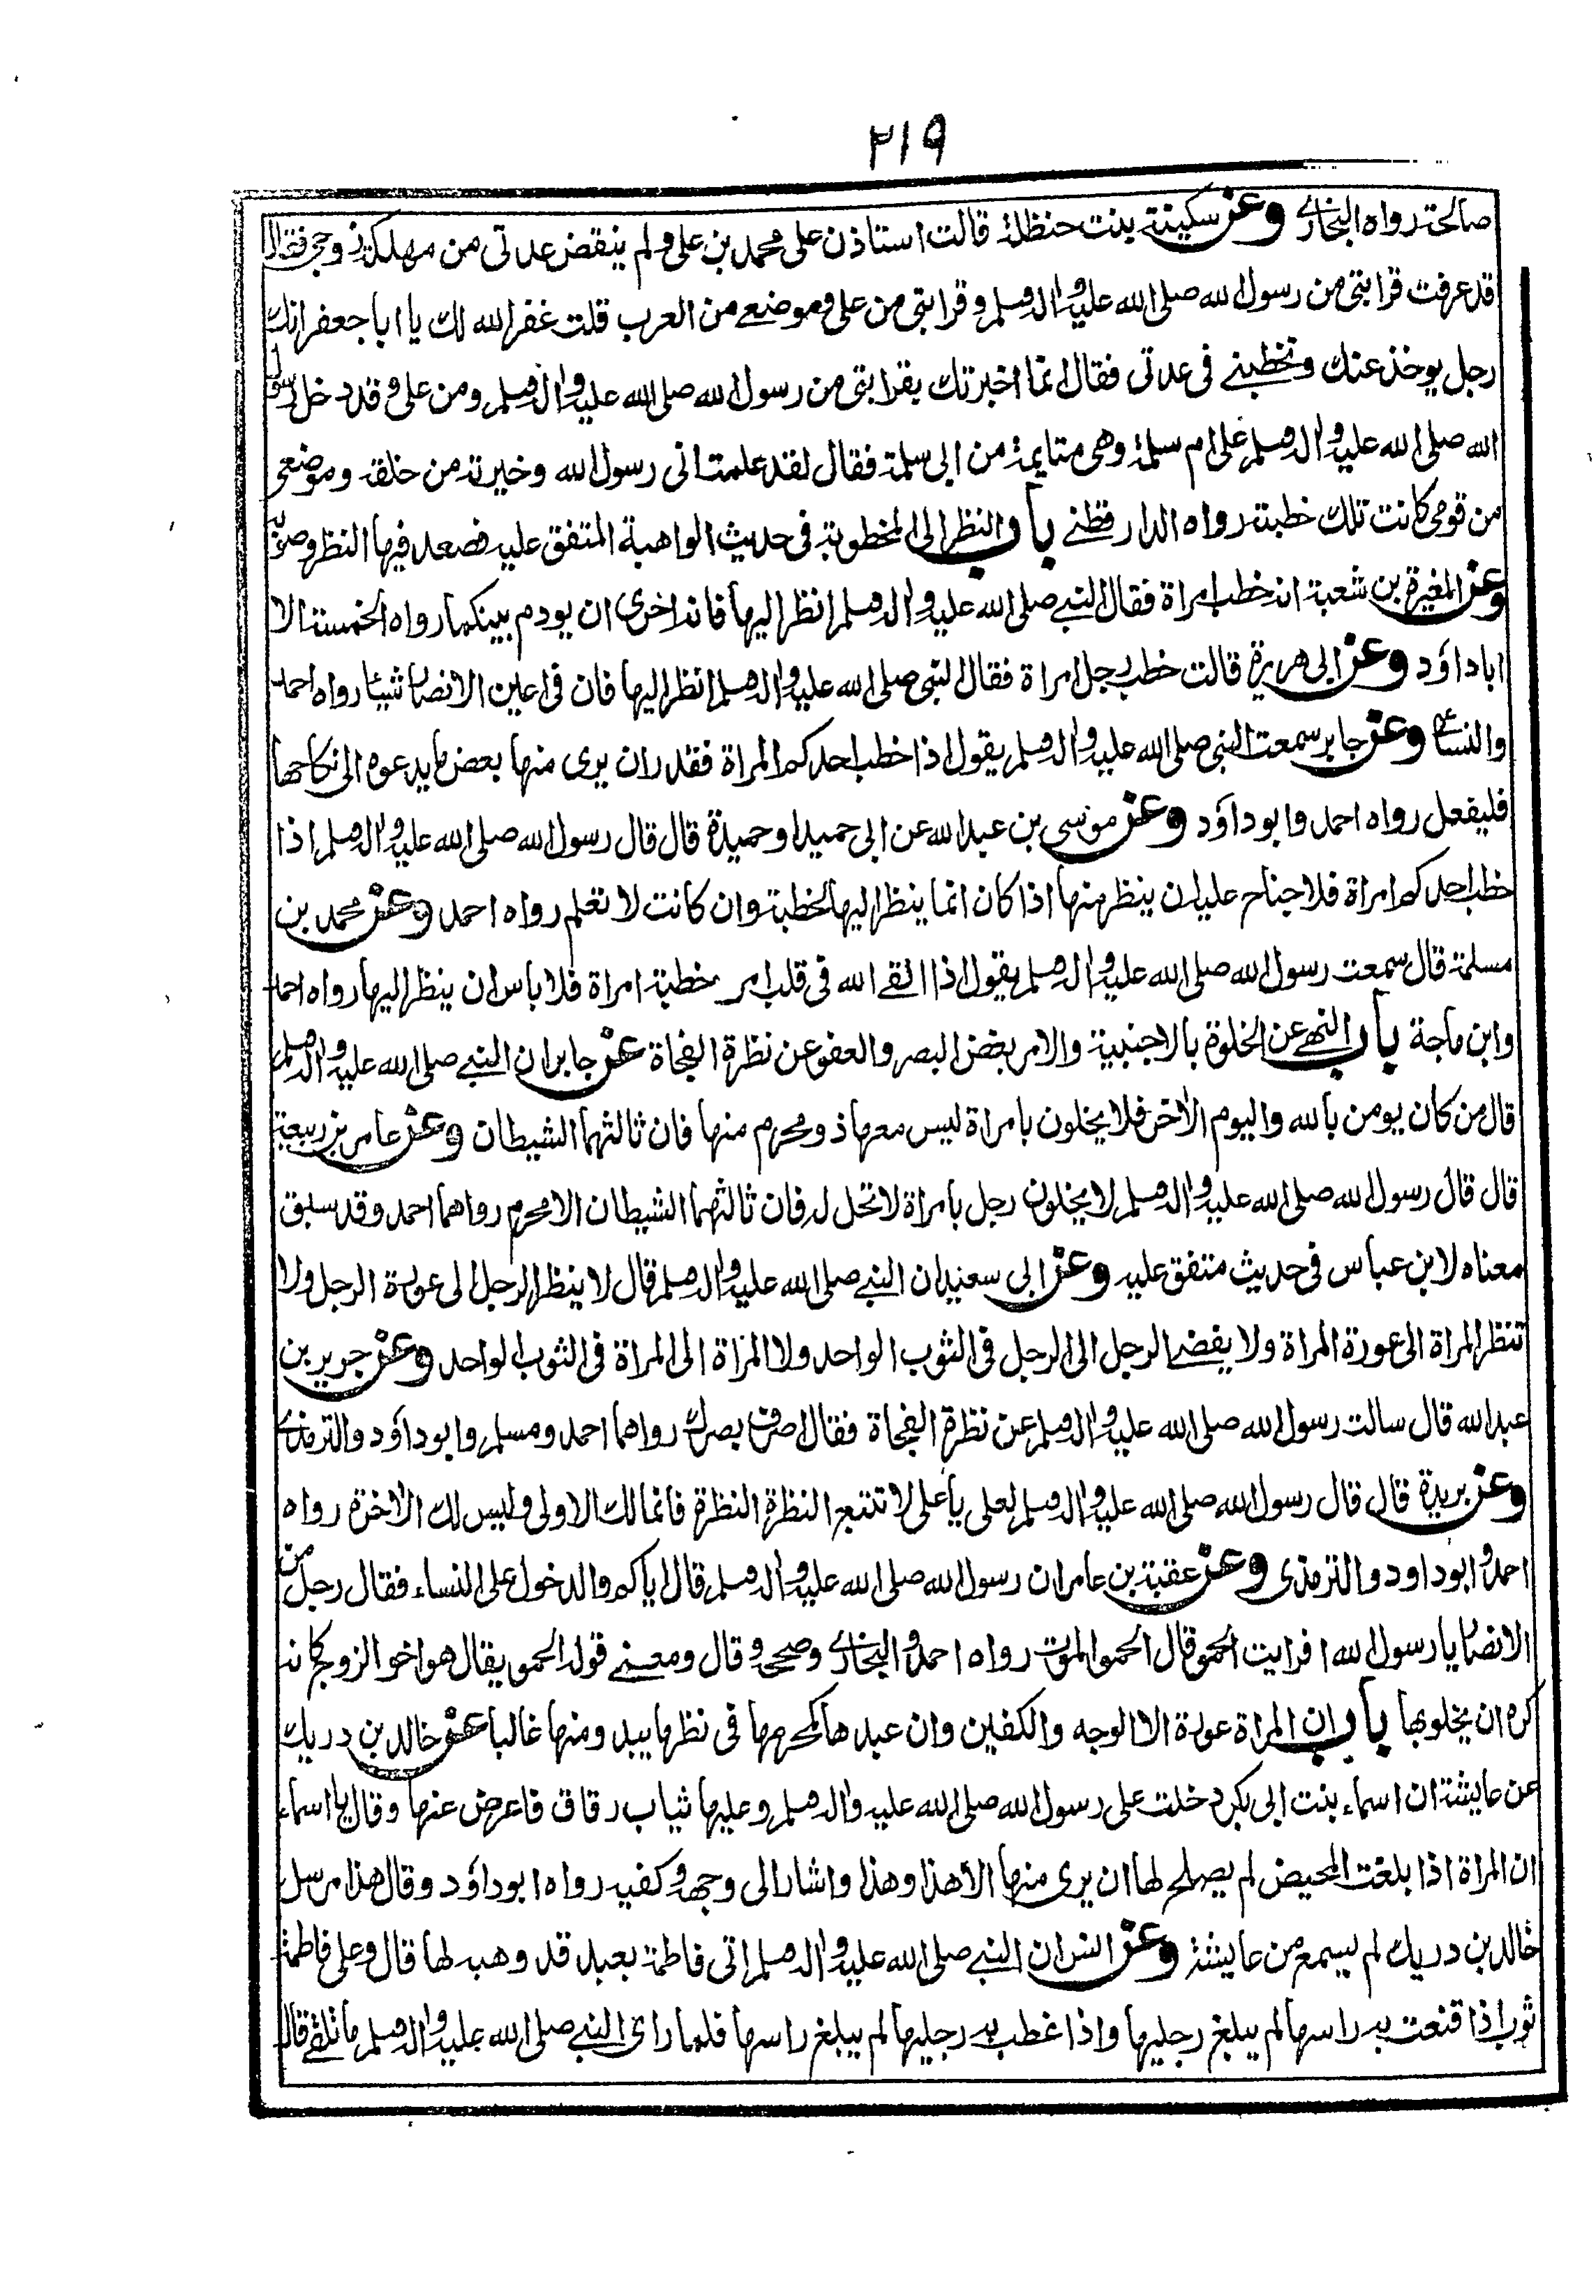 ٢١٩
صالحة رواه البخاري وعن سكينة بنت حنظلة قالت استاذن على محمد بن على ولم ينقض عدتى من مهلك زوجى فقال
قد عرفت قرابتى من رسول الله صلى الله عليه واله وسلم وقرابتى من على وموضعى من العرب قلت غفر الله لك يا ابا جعفر انك
رجل يوخذ عنك وتخطبنى فى عدتى فقال انما اخبرتك بقرابتى من رسول الله صلى الله عليه واله وسلم ومن على وقد دخل رسول
الله صلى الله عليه واله وسلم على ام سلمة وهى متايمة من ابى سلمة فقال لقد علمت انى رسول الله وخيرته من خلقه وموضعى
من قومى كانت تلك خطبته رواه الدارقطنى باب النظر الى المخطوبة فى حديث الواهبة المتفق عليه فصعد فيها النظر وصوبه
وعن المغيرة بن شعبة انه خطب امراة فقال النبى صلى الله عليه واله وسلم انظر اليها فانه احرى ان يودم بينكما رواه الخمسة الا
ابا داؤد وعن ابى هريرة قالت خطب رجل امراة فقال النبى صلى الله عليه واله وسلم انظر اليها فان فى اعين الانصار شيئا رواه احمد
والنسائى وعن جابر سمعت النبى صلى الله عليه واله وسلم يقول اذا خطب احدكم المراة فقدر ان يرى منها بعض ما يدعوه الى نكاحها
فليفعل رواه احمد وابو داؤد وعن موسى بن عبد الله عن ابى حميد او حميدة قال قال رسول الله صلى الله عليه واله وسلم اذا
خطب احدكم امراة فلا جناح عليه ان ينظر منها اذا كان انما ينظر اليها لخطبة وان كانت لا تعلم رواه احمد وعن محمد بن
مسلمة قال سمعت رسول الله صلى الله عليه واله وسلم يقول اذا القى الله فى قلب امر خطبة امراة فلا باس ان ينظر اليها رواه احمد
وابن ماجة باب النهى عن الخلوة بالاجنبية والامر بغض البصر والعفو عن نظرة الفجاة عن جابر ان النبى صلى الله عليه واله وسلم
قال من كان يومن بالله واليوم الاخر فلا يخلون بامراة ليس معها ذو محرم منها فان ثالثهما الشيطان وعن عامر بن ربيعة
قال قال رسول الله صلى الله عليه واله وسلم لا يخلون رجل بامراة لا تحل له فان ثالثهما الشيطان الا محرم رواهما احمد وقد سبق
معناه لابن عباس فى حديث متفق عليه وعن ابى سعيد ان النبى صلى الله عليه واله وسلم قال لا ينظر الرجل الى عورة الرجل ولا
تنظر المراة الى عورة المراة ولا يفضى الرجل الى الرجل فى الثوب الواحد ولا المراة الى المراة فى الثوب الواحد وعن جرير بن
عبد الله قال سالت رسول الله صلى الله عليه واله وسلم عن نظرة الفجاة فقال اصرف بصرك رواهما احمد ومسلم وابو داؤد والترمذى
وعن بريدة قال قال رسول الله صلى الله عليه واله وسلم لعلى يا على لا تتبع النظرة النظرة فانما لك الاولى وليس لك الاخرة رواه
احمد وابو داود والترمذى وعن عقبة بن عامر ان رسول الله صلى الله عليه واله وسلم قال اياكم والدخول على النساء فقال رجل من
الانصار يا رسول الله افرايت الحمو قال الحمو الموت رواه احمد والبخارى وصححه وقال ومعنى قوله الحمو يقال هو اخو الزوج كانه
كره ان يخلو بها باب ان المراة عورة الا الوجه والكفين وان عبدها كمحرمها فى نظر ما يبدو منها غالبا عن خالد بن دريك
عن عايشة ان اسماء بنت ابى بكر دخلت على رسول الله صلى الله عليه واله وسلم وعليها ثياب رقاق فاعرض عنها وقال يا اسماء
ان المراة اذا بلغت المحيض لم يصلح لها ان يرى منها الا هذا وهذا واشار الى وجهه وكفيه رواه ابو داؤد وقال هذا مرسل
خالد بن دريك لم يسمع من عايشة وعن انس ان النبى صلى الله عليه واله وسلم اتى فاطمة بعبد قد وهبه لها قال وعلى فاطمة
ثوب اذا قنعت به راسها لم يبلغ رجليها واذا غطب به رجليها لم يبلغ راسها فلما راى النبى صلى الله عليه واله وسلم ما تلقى قال